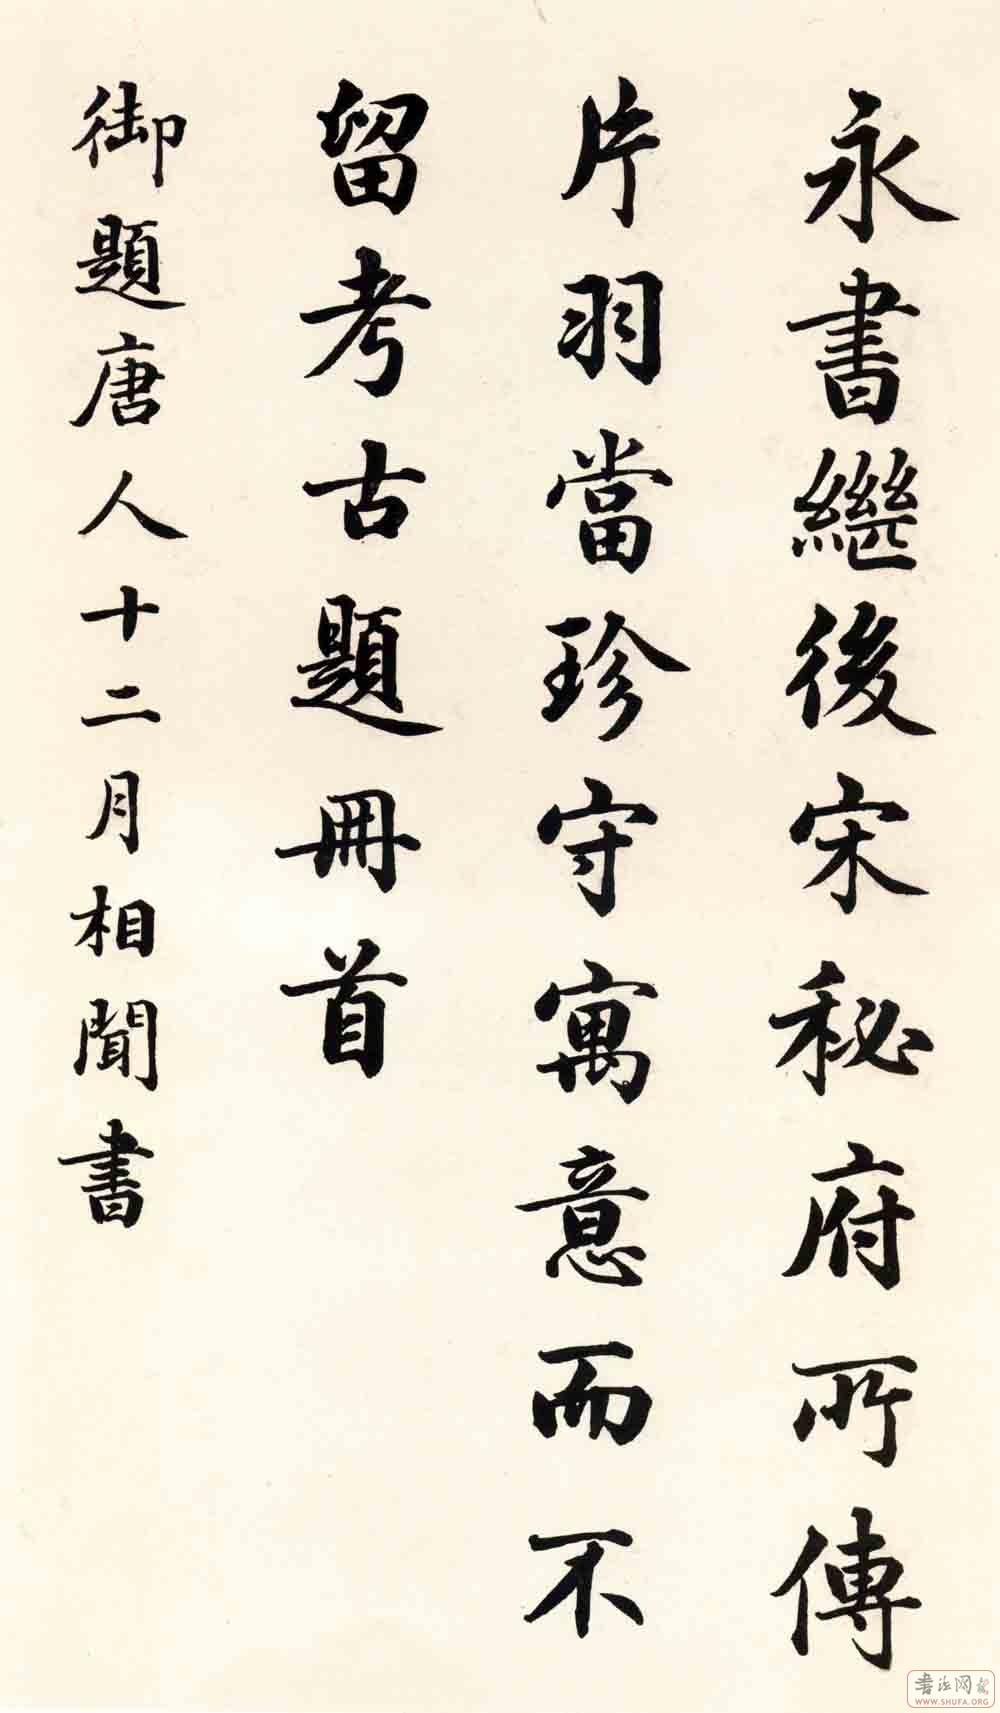 永書繼後宋秘府所傳
片羽當珍守寓意而不
留考古題冊首
御題唐人十二月相聞書
書法网
WWW.SHUFA.ORG